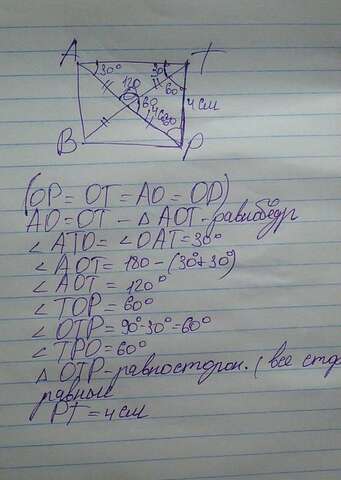 A T
30° 30
120 60
O 60 4 см
4 см 60
B P
(OP = OT = AO = OD)
AO = OT - △ AOT - равнобедр
∠ ATO = ∠ OAT = 30°
∠ AOT = 180 - (30°+30°)
∠ AOT = 120°
∠ TOP = 60°
∠ OTP = 90°-30°=60°
∠ TPO = 60°
△ OTP - равносторон. (все сто
равные
PT = 4 см